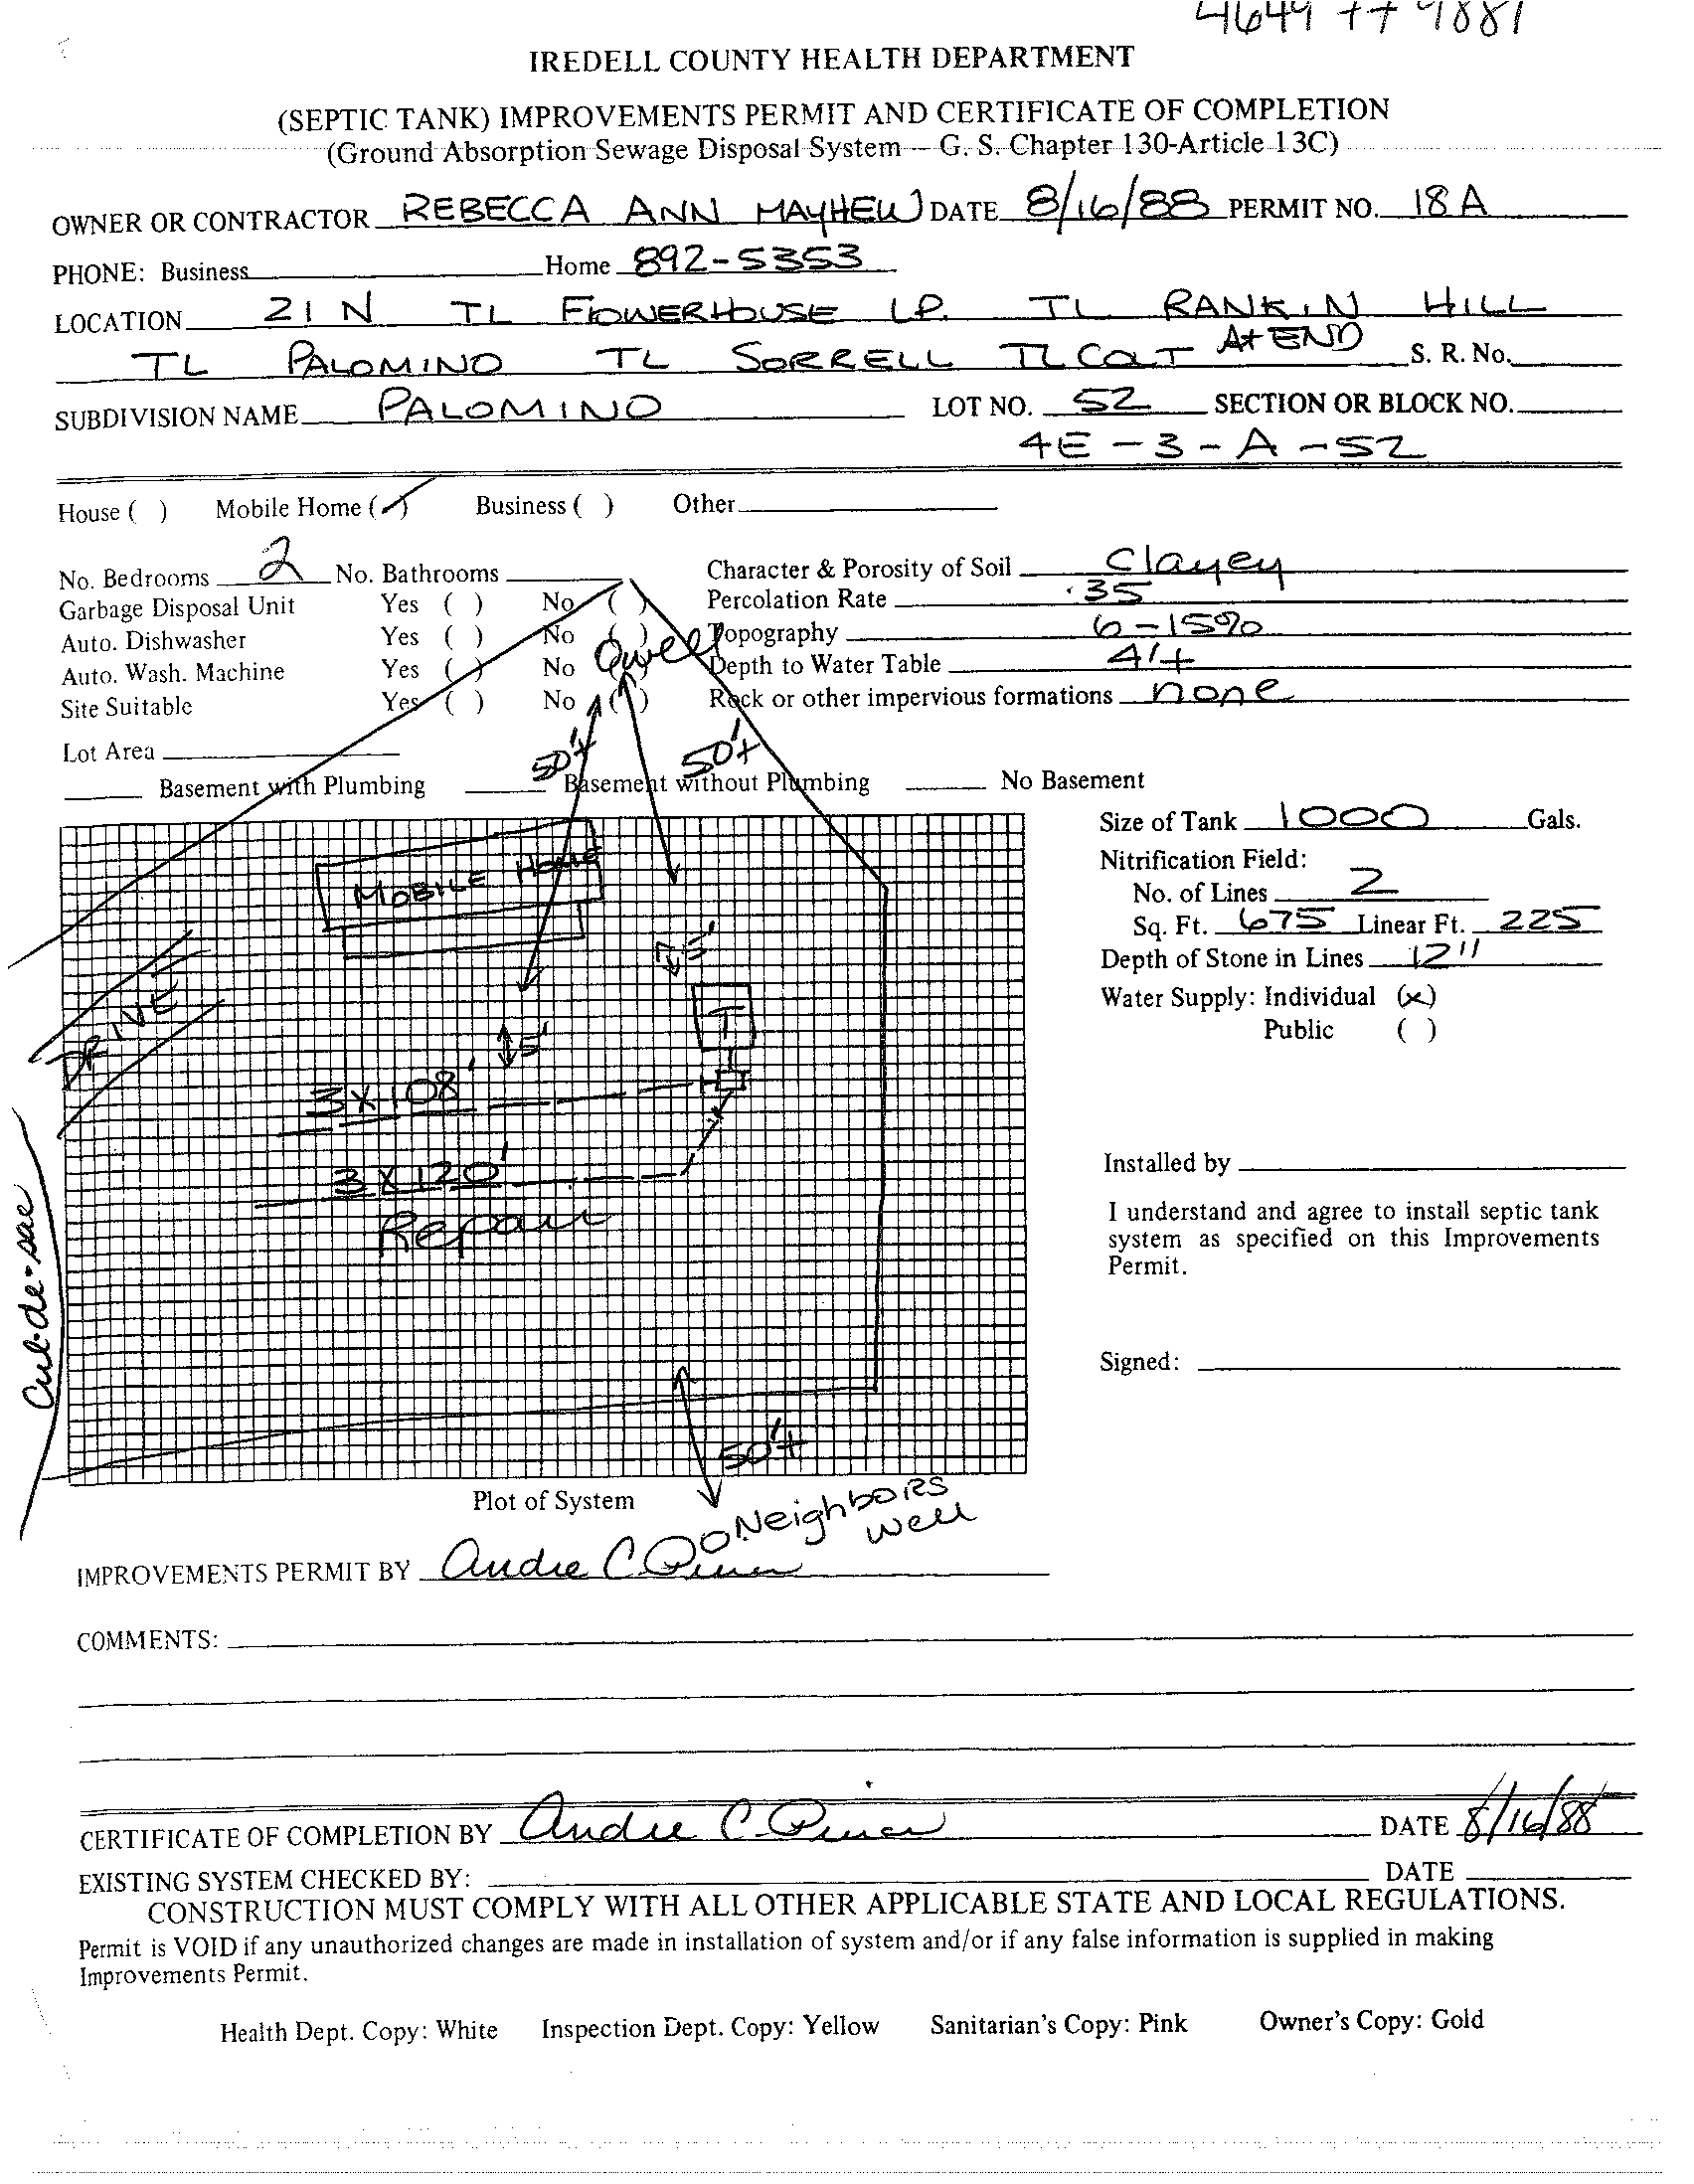 4649 77 9881
IREDELL COUNTY HEALTH DEPARTMENT
(SEPTIC TANK) IMPROVEMENTS PERMIT AND CERTIFICATE OF COMPLETION
(Ground Absorption Sewage Disposal System — G. S. Chapter 130-Article 13C)
OWNER OR CONTRACTOR REBECCA ANN MAYHEW DATE 8/16/88 PERMIT NO. 18A
PHONE: Business Home 892-5353
LOCATION 21 N TL FLOWERHOUSE LP. TL RANKIN HILL
TL PALOMINO TL SORRELL TL COLT At END S. R. No.
SUBDIVISION NAME PALOMINO LOT NO. 52 SECTION OR BLOCK NO.
4E-3-A-52
House ( ) Mobile Home (✓) Business ( ) Other
No. Bedrooms 2 No. Bathrooms Character & Porosity of Soil Clayey
Garbage Disposal Unit Yes ( ) No ( ) Percolation Rate .35
Auto. Dishwasher Yes ( ) No ( ) Topography 6-15%
well
Auto. Wash. Machine Yes ( ) No ( ) Depth to Water Table 4'+
Site Suitable Yes ( ) No ( ) Rock or other impervious formations none
Lot Area 50'+ 50'+
Basement with Plumbing Basement without Plumbing No Basement
Size of Tank 1000 Gals.
Nitrification Field:
No. of Lines 2
Sq. Ft. 675 Linear Ft. 225
Depth of Stone in Lines 12"
Water Supply: Individual (x)
Public ( )
MOBILE HOME
DRIVE
5'
T
5'
3 X 108'
3 X 120'
Repair
Cul-de-sac
50'+
Installed by
I understand and agree to install septic tank
system as specified on this Improvements
Permit.
Signed:
Plot of System
Neighbors
well
IMPROVEMENTS PERMIT BY Andre C
COMMENTS:
CERTIFICATE OF COMPLETION BY Andre C DATE 8/16/88
EXISTING SYSTEM CHECKED BY: DATE
CONSTRUCTION MUST COMPLY WITH ALL OTHER APPLICABLE STATE AND LOCAL REGULATIONS.
Permit is VOID if any unauthorized changes are made in installation of system and/or if any false information is supplied in making
Improvements Permit.
Health Dept. Copy: White Inspection Dept. Copy: Yellow Sanitarian's Copy: Pink Owner's Copy: Gold